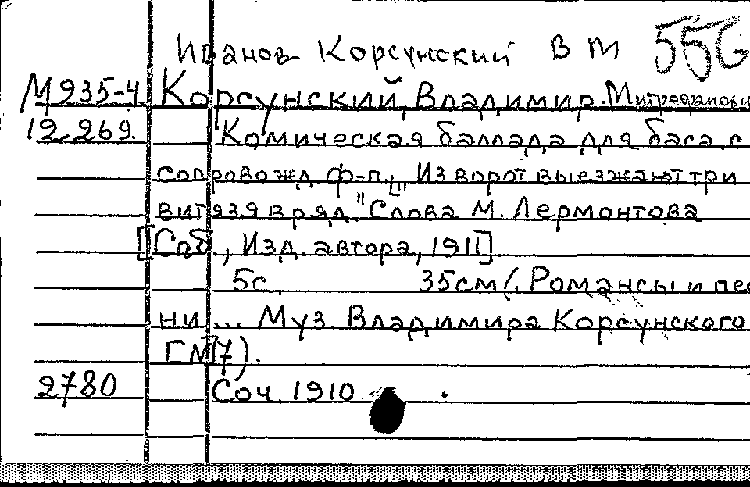 Иванов Корсунский В М 556
М935-4 Корсунский, Владимир Митрофанови
12.269. Комическая баллада для баса с
сопровожд. ф-п., "Из ворот выезжают три
витязя в ряд." Слова М. Лермонтова
[Спб., Изд. автора, 1911]
5с. 35см (Романсы и пес
ни ... Муз. Владимира Корсунского
2780 Соч. 1910